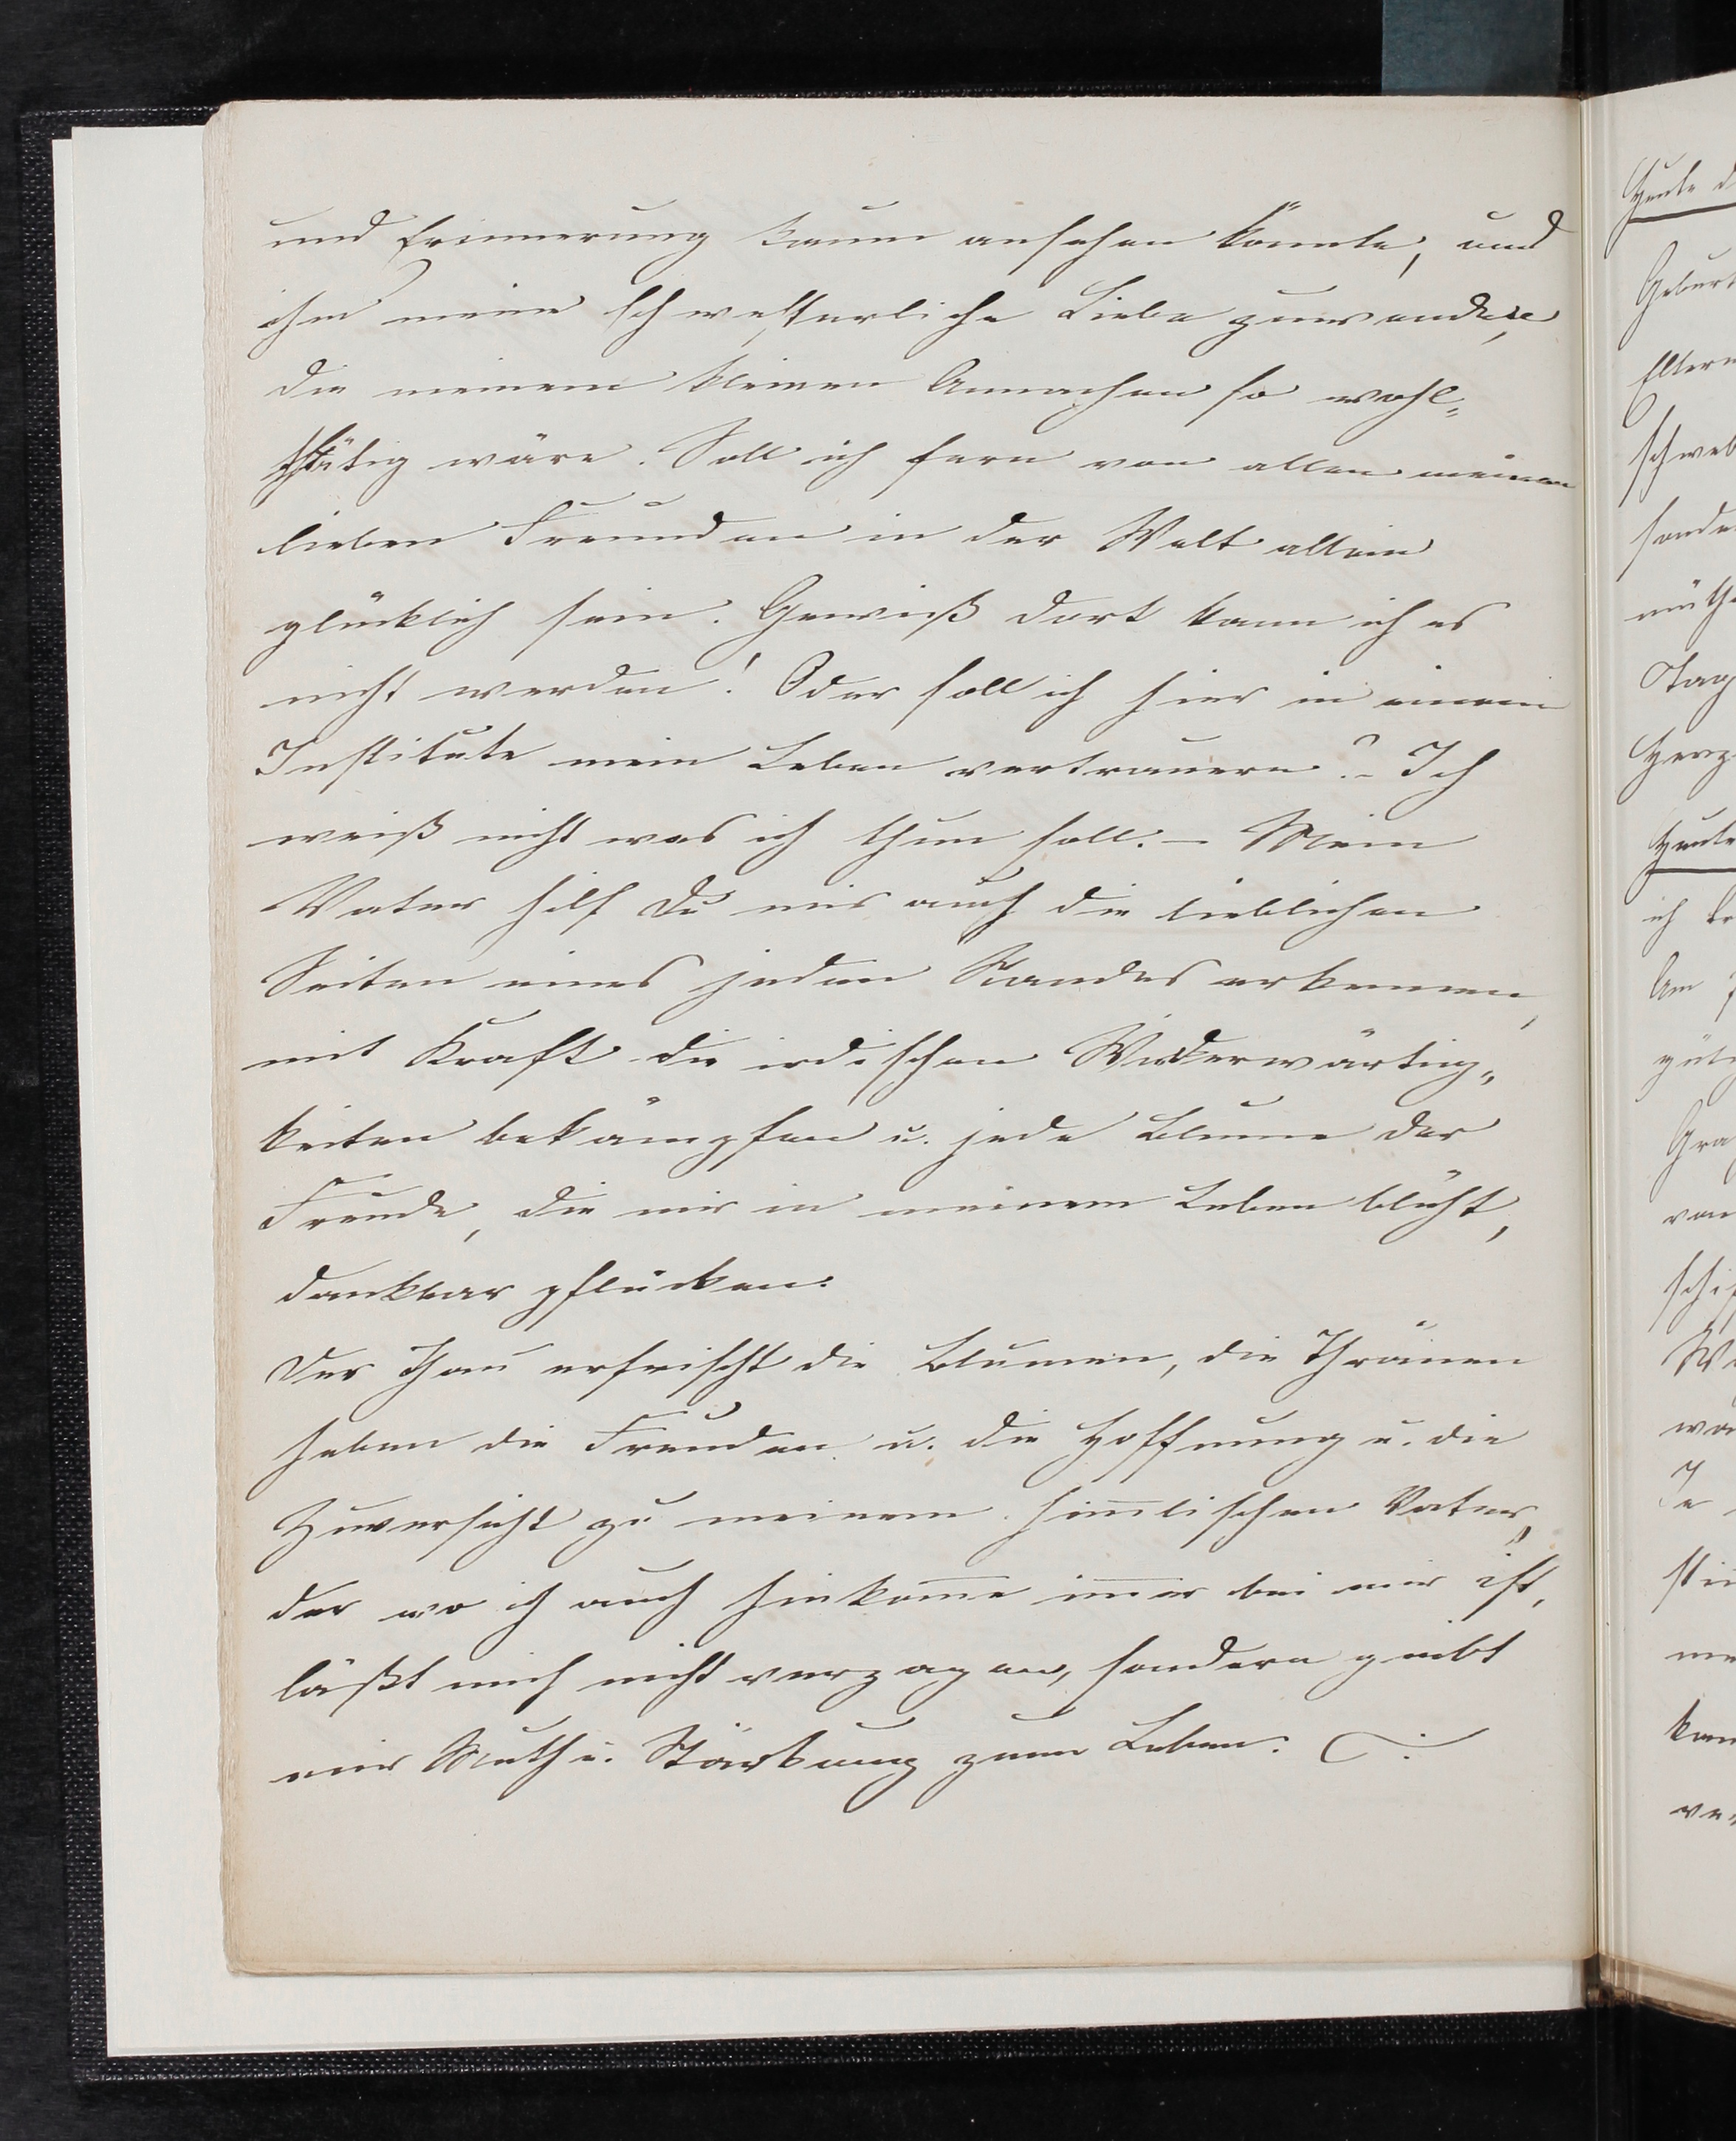 und Erinnerung kaum ansehen könnte, und
ihm meine schwesterliche Liebe zuwendete,
die meinem kleinen Annachen so wohl-
thätig wäre. Soll ich fern von allen meinen
lieben Freunden in der Welt allein
glücklich sein. Gewiß dort kann ich es
nicht werden! Oder soll ich hier in einem
Institute mein Leben vertrauern? – Ich
weiß nicht was ich thun soll. – Mein
Vater hilf Du mir auch die lieblichen
Seiten eines jeden Standes erkennen,
mit Kraft die irdischen Widerwärtig-
keiten bekämpfen u. jede Blume der
Freude, die mir in meinem Leben blüht,
dankbar pflücken.
Der Thau erfrischt die Blumen, die Thränen
heben die Freuden u. die Hoffnung u. die
Zuversicht zu meinem him̅lischen Vater,
der wo ich auch hinkom̅e im̅er bei mir ist,
läßt mich nicht verzagen, sondern giebt
mir Muth u. Stärkung zum Leben.
Heute d
Geburt
Eltern
schweb
sonde
müth
Tag
Herz
Heute
ich
Am
güt
Gra
von
schi
We
wa
Je
kan
ver